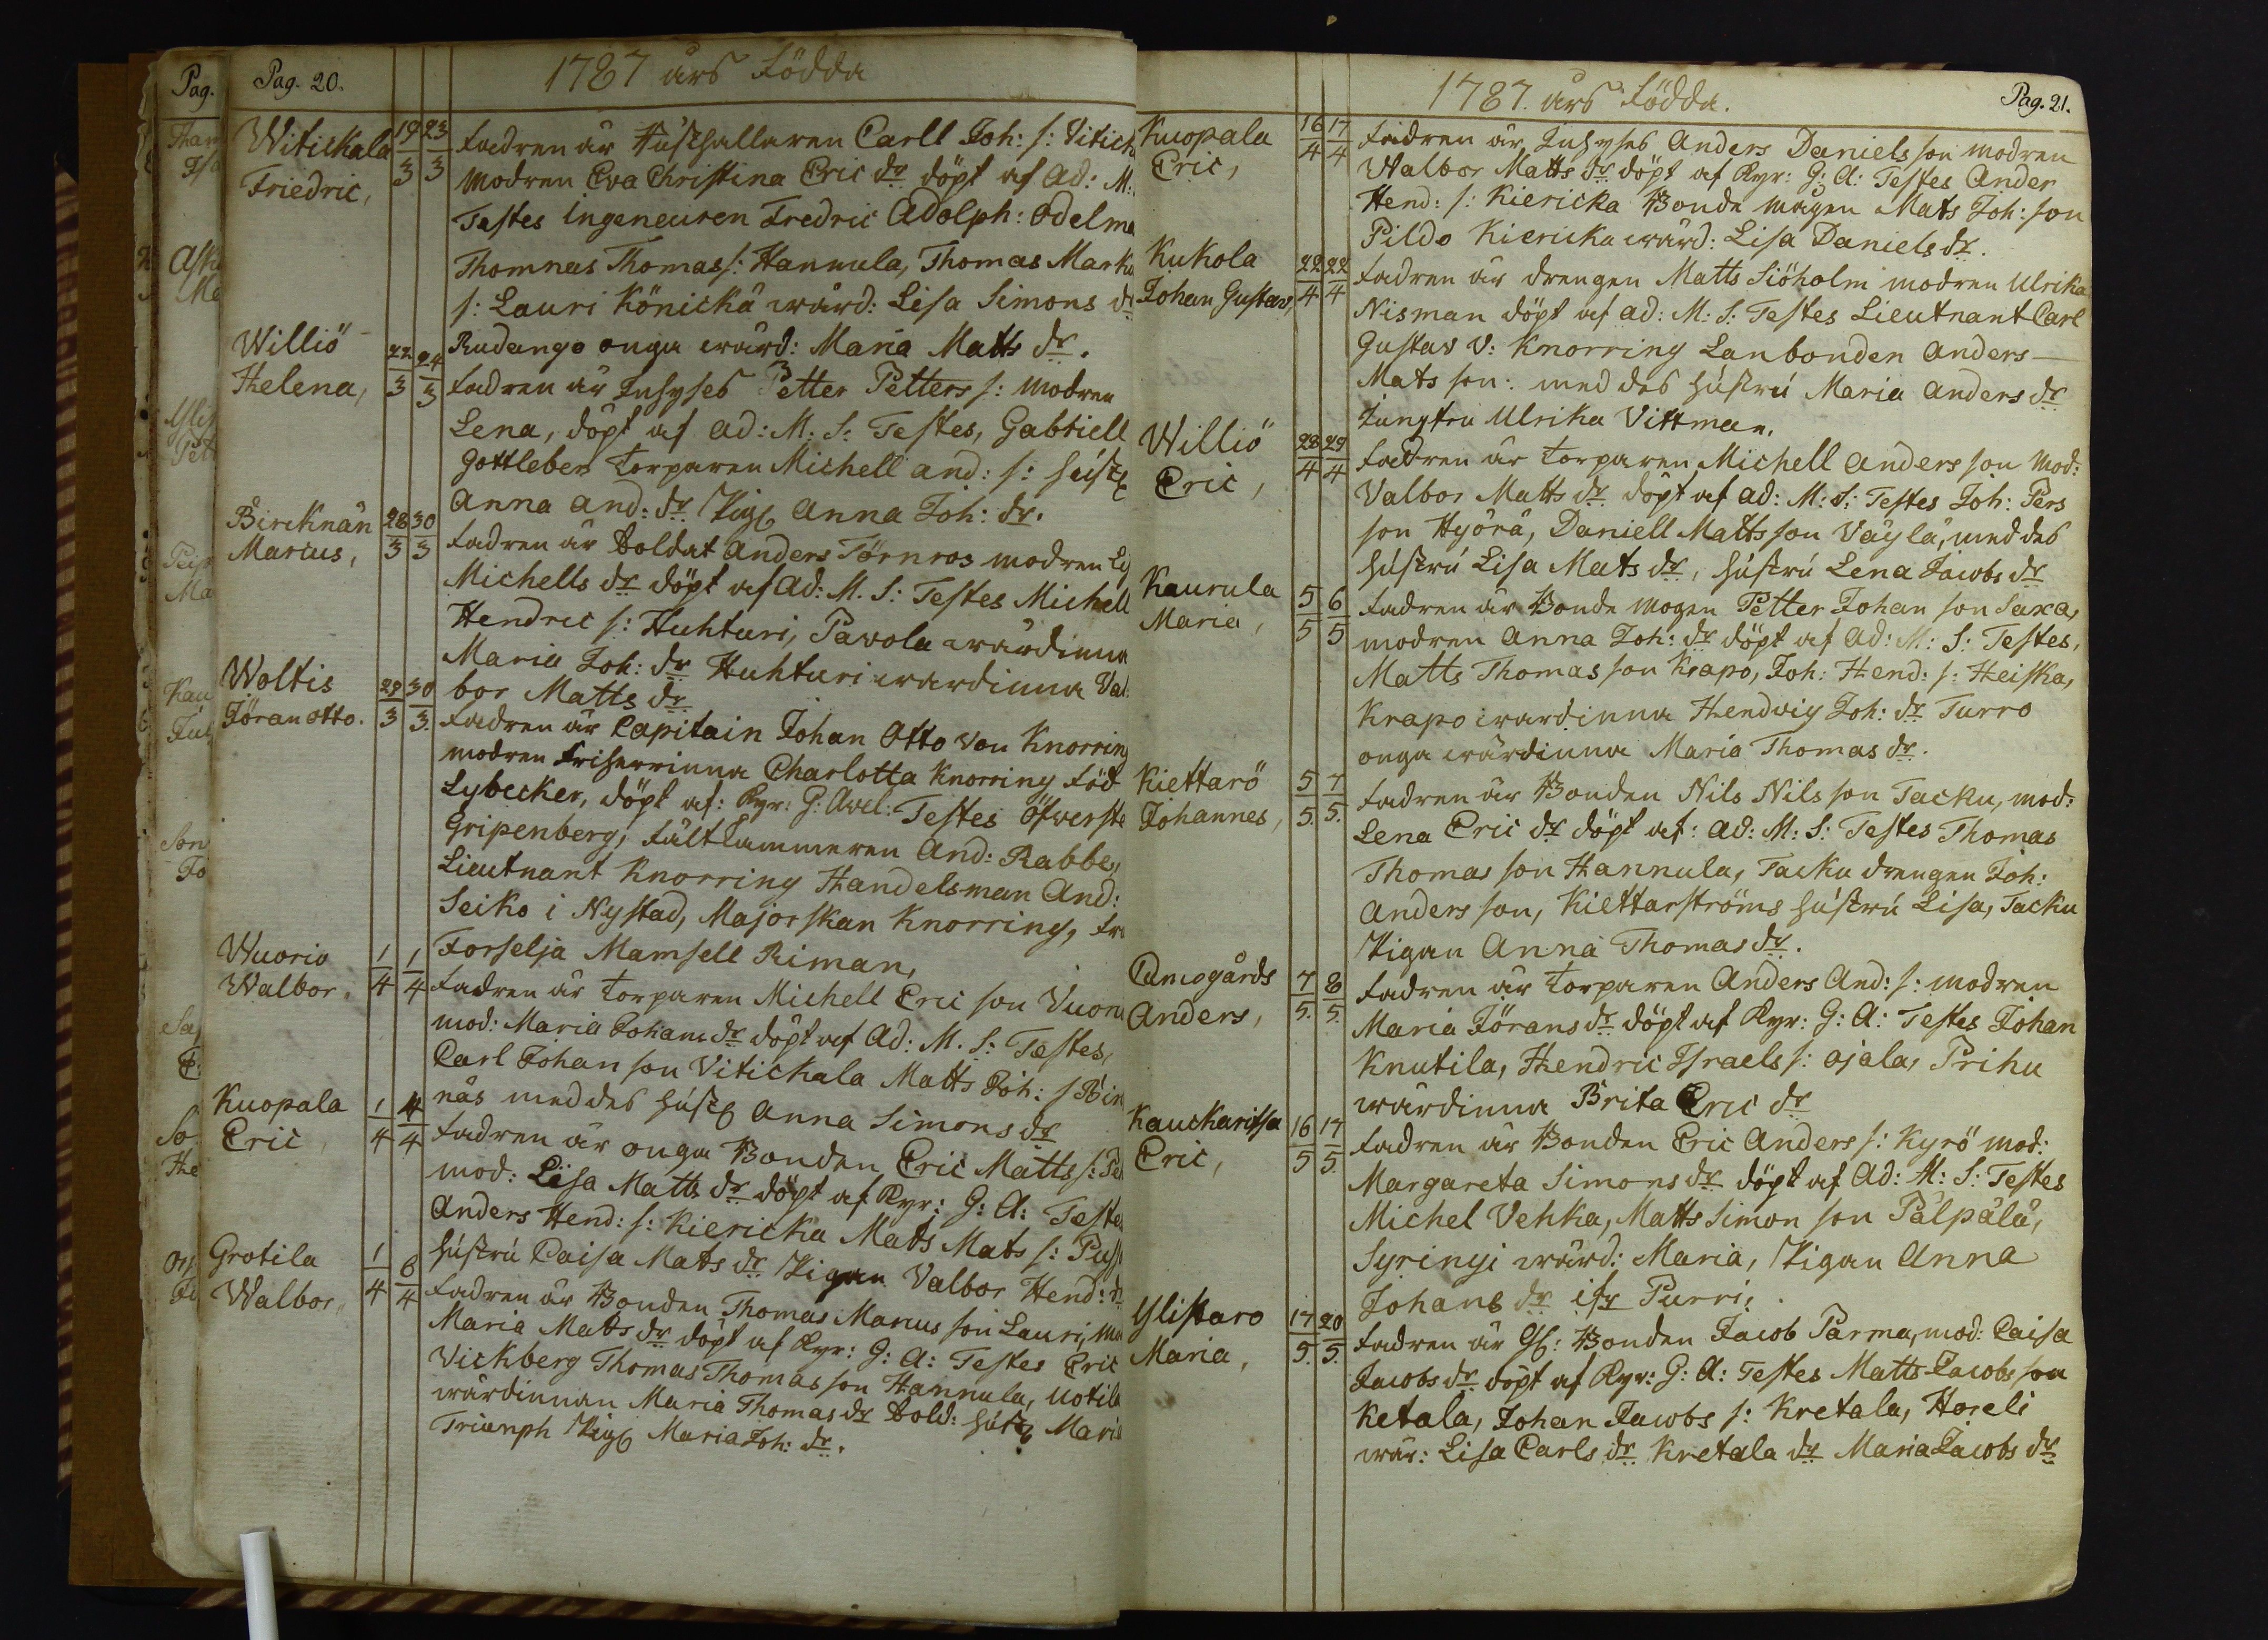 Pag. 20.
1787 års Födda
Witickala 19/3 23/3 Fadren är Rusthallaren Carll Joh: s: Vitick
Friedric, modren Eva Christina Eric dr döpt af Ad: M:
Testes ingeneuren Fredric Adolph: Odelma
Thomnas Thomas s: Hannula, Thomas Marku
s: Lauri Könickä wärd: Lisa Simons dr
Rudango onga wärd: Maria Matts dr.
Williö Helena, 22/3 24/3 Fadren är Inhyses Petter Petters s: modren
Lena, döpt af ad: M: S: Testes, Gabriell
Gottleben torparen Michell and: s: hust
Anna and: dr Pig Anna Joh: dr.
Bircknän Marcus, 28/3 30/3 Fadren är Soldat Anders Törnros modren Li
Michells dr döpt af Ad: M. S: Testes Michell
Hendric s: Huhturi, Pavola wärdinna
Maria Joh: dr Huhturi wärdinna Val
bor Matts dr
Woltis Jöran Otto. 29/3 30/3 Fadren är Capitain Johan Otto von Knorring
modren Friherrinna Charlotta Knorring föd
Lybecker, döpt af: Kyr: G: Avel: Testes Öfverste
Gripenberg, Fältkammeren And: Rabbe,
Lieutnant Knorring Handelsman And:
Seiko i Nystad, Majorskan Knorring, fr
Forselja Mamsell Riman,
Wuorio Walbor, 1/4 1/4 Fadren är torparen Michell Eric son Vuori
mod: Maria Johans dr döpt af Ad: M. S: Testes,
Carl Johan son Vitickala Matts Joh: s Bir
näs med des hust Anna Simons dr
Kuopala Eric, 1/4 4/4 Fadren är onga Bonden Eric Matts s:
mod: Lisa Matts dr döpt af Kyr: G: A: Teste
Anders Hend: s: Kiericka Mats Mats s: Puss
hustru Caisa Mats dr Pigan Valbor Hend: dr
Grotila Walbor, 1/4 6/4 Fadren är Bonden Thomas Marcus son Lauri, mo
Maria Matts dr döpt af Kyr: G: A: Testes Eric
Vickberg Thomas Thomas son Hannula, Uotila
wärdinnan Maria Thomas dr Sold: hust Maria
Triumph Pig Maria Joh: dr.
1787. års Födda. Pag. 21.
Kuopala Eric, 16/4 17/4 Fadren är Inhyses Anders Daniels son modren
Walbor Matts dr döpt af Kyr: G: A: Testes Ander
Hend: s: Kiericka Bonde magen Mats Joh: son
Pildo Kiericka wärd: Lisa Daniels dr.
Kukola Johan Gustav, 22/4 22/4 Fadren är drengen Matts Siöholm modren Ulrika
Nisman döpt af ad: M: S: Testes Lieutnant Carl
Gustav v: Knorring Lanbonden Anders
Mats son: med des hustru Maria Anders dr
Jungfru Ulrika Vittman.
Williö Eric, 28/4 29/4 Fadren är torparen Michell Anders son mod:
Valbor Matts dr döpt af ad: M: S: Testes Joh: Pers
son Hyörä, Daniell Matts son Väylä, med des
hustru Lisa Mats dr, hustru Lena Jacobs dr
Kaurula Maria, 5/5 6/5 Fadren är Bonde mogen Petter Johan son Saxa,
modren Anna Joh: dr döpt af ad: M: S: Testes,
Matts Thomas son Krapo, Joh: Hend: s: Heiska,
Krapo wardinna Hendvig Joh: dr Turro
onga wärdinna Maria Thomas dr.
Kiettarö Johannes, 5/5. 7/5. Fadren är Bonden Nils Nils son Tacku, mod:
Lena Eric dr döpt af: ad: M: S: Testes Thomas
Thomas son Hannula, Tacku drengen Joh:
Anders son, Kiettarströms hustru Lisa, Tacku
Pigan Anna Thomas dr.
Camogårds Anders, 7/5. 8/5. Fadren är torparen Anders And: s: modren
Maria Jörans dr döpt af Kyr: G: A: Testes Johan
Knutila, Hendric Israels s: Ojala, Prihu
wärdinna Brita Eric dr
Kauckaritsa Eric, 16/5 17/5. Fadren är Bonden Eric Anders s: Kyrö mod:
Margareta Simons dr döpt af Ad: M: S: Testes
Michel Vehka, Matts Simon son Pälpälä,
Syrinyi wärd: Maria, Pigan Anna
Johans dr ifr Purri,
Ylistaro Maria, 17/5. 20/5. Fadren är Gl: Bonden Jacob Parma, mod: Caisa
Jacobs dr döpt af Kyr: G: A: Testes Matts Jacobs son
Ketala, Johan Jacobs s: Kretala, Horeli
wär: Lisa Carls dr Kretala dr Maria Jacobs dr